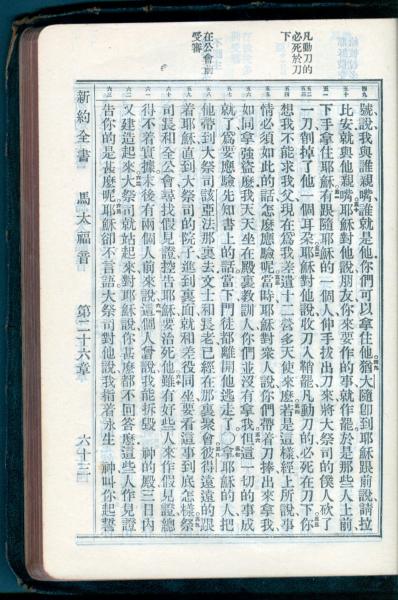 凡動刀的
必死於刀
下
在公會前
受審
號、說我與誰親嘴、誰就是他、你們可以拿住他猶大隨卽到耶穌跟前說、請拉
比安就與他親嘴耶穌對他說、朋友、你來要作的事就作罷於是那些人上前
下手拿住耶穌有跟隨耶穌的一個人、伸手拔出刀來將大祭司的僕人砍了
一刀、削掉了他一個耳朶耶穌對他說、收刀入鞘罷凡動刀的必死在刀下你
想我不能求我父、現在爲我差遣十二營多天使來麼若是這樣、經上所說事
情必須如此的話、怎麼應驗呢當時耶穌對衆人說、你們帶着刀棒、出來拿我、
如同拿強盜麼我天天坐在殿裏敎訓人、你們並沒有拿我但這一切的事成
就了、爲要應驗先知書上的話當下門徒都離開他逃走了○拿耶穌的人、把
他帶到大祭司該亞法那裏去文士和長老已經在那裏聚會彼得遠遠的跟
着耶穌、直到大祭司的院子、進到裏面、就和差役同坐、要看這事到底怎樣祭
司長和全公會、尋找假見證、控告耶穌、要治死他雖有好些人來作假見證、總
得不着實據末後有兩個人前來說、這個人曾說、我能拆毀　神的殿、三日內
又建造起來大祭司就站起來、對耶穌說、你甚麼都不回答麼這些人作見證
告你的是甚麼呢耶穌卻不言語大祭司對他說、我指着永生　神、叫你起誓
新約全書　馬太福音　第二十六章　六十三